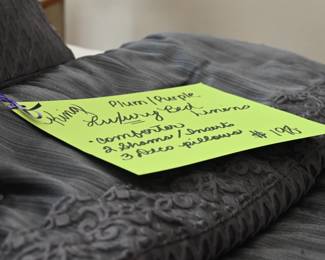 King
Plum/Purple
Luxury Bed Linens
• comforter
2 Shams/Inserts
3 Deco pillows $198.